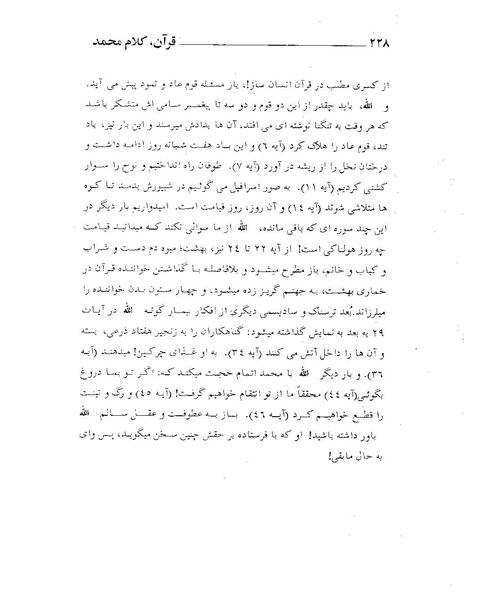 ۲۲۸ قرآن، کلام محمد
از کسری مطلب در قرآن انسان ساز!، باز مسئله قوم عاد و ثمود پیش می آید.
و الله، باید چقدر از این دو قوم و دو سه تا پیغمبر سامی اش متشکر باشد
که هر وقت به تنگنا نوشته ای می افتد، آن ها بدادش میرسند و این بار نیز، یاد
تند، قوم عاد را هلاک کرد (آیه ۶) و این باد هفت شبانه روز ادامه داشت و
درختان نخل را از ریشه در آورد (آیه ۷). طوفان راه انداختیم و نوح را سوار
کشتی کردیم (آیه ۱۱). به صور اسرافیل می گوئیم در شیپورش بدمد تا کوه
ها متلاشی شوند (آیه ۱۴) و آن روز، روز قیامت است. امیدواریم بار دیگر در
این چند سوره ای که باقی مانده، الله از ما سوالی نکند که میدانید قیامت
چه روز هولناکی است! از آیه ۲۲ تا ۲۴ نیز، بهشت؛ میوه دم دست و شراب
و کباب و خانم، باز مطرح میشود و بلافاصله با گذاشتن خواننده قرآن در
خماری بهشت، به جهنم گریز زده میشود، و چهار ستون بدن خواننده را
میلرزاند. بُعد ترسناک و سادیسمی دیگری از افکار بیمار گونه الله در آیات
۲۹ به بعد به نمایش گذاشته میشود: گناهکاران را به زنجیر هفتاد ذرعی، بسته
و آن ها را داخل آتش می کنند (آیه ۳۴). به او غذای چرکین! میدهند (آیه
۳۶). و بار دیگر الله با محمد اتمام حجت میکند که: اگر تو بما دروغ
بگوئی (آیه ۴۴) محققاً ما از تو انتقام خواهیم گرفت! (آیه ۴۵) و رگ و تینت
را قطع خواهیم کرد (آیه ۴۶). بساز به عطوفت و عقل سالم الله
باور داشته باشید! او که با فرستاده بر حقش چنین سخن میگوید، پس وای
به حال مابقی!